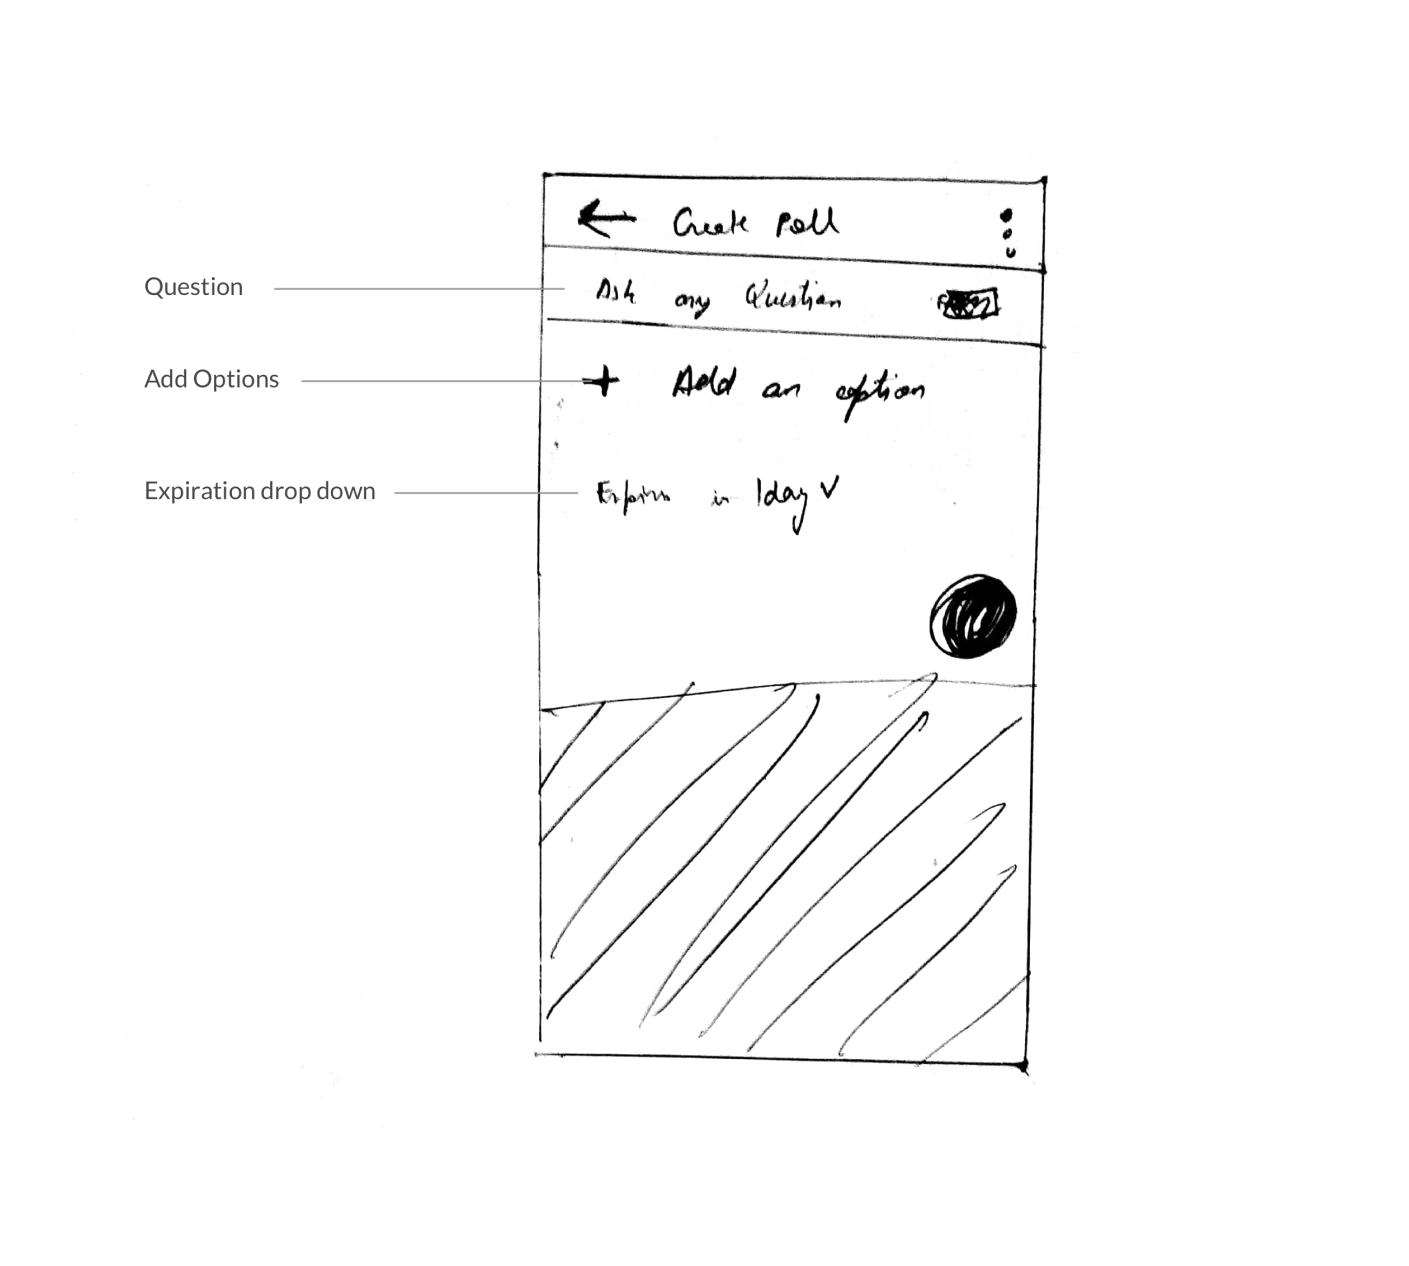 Create Poll
Question
Ask any Question
Add Options
+ Add an option
Expiration drop down
Expires in 1day